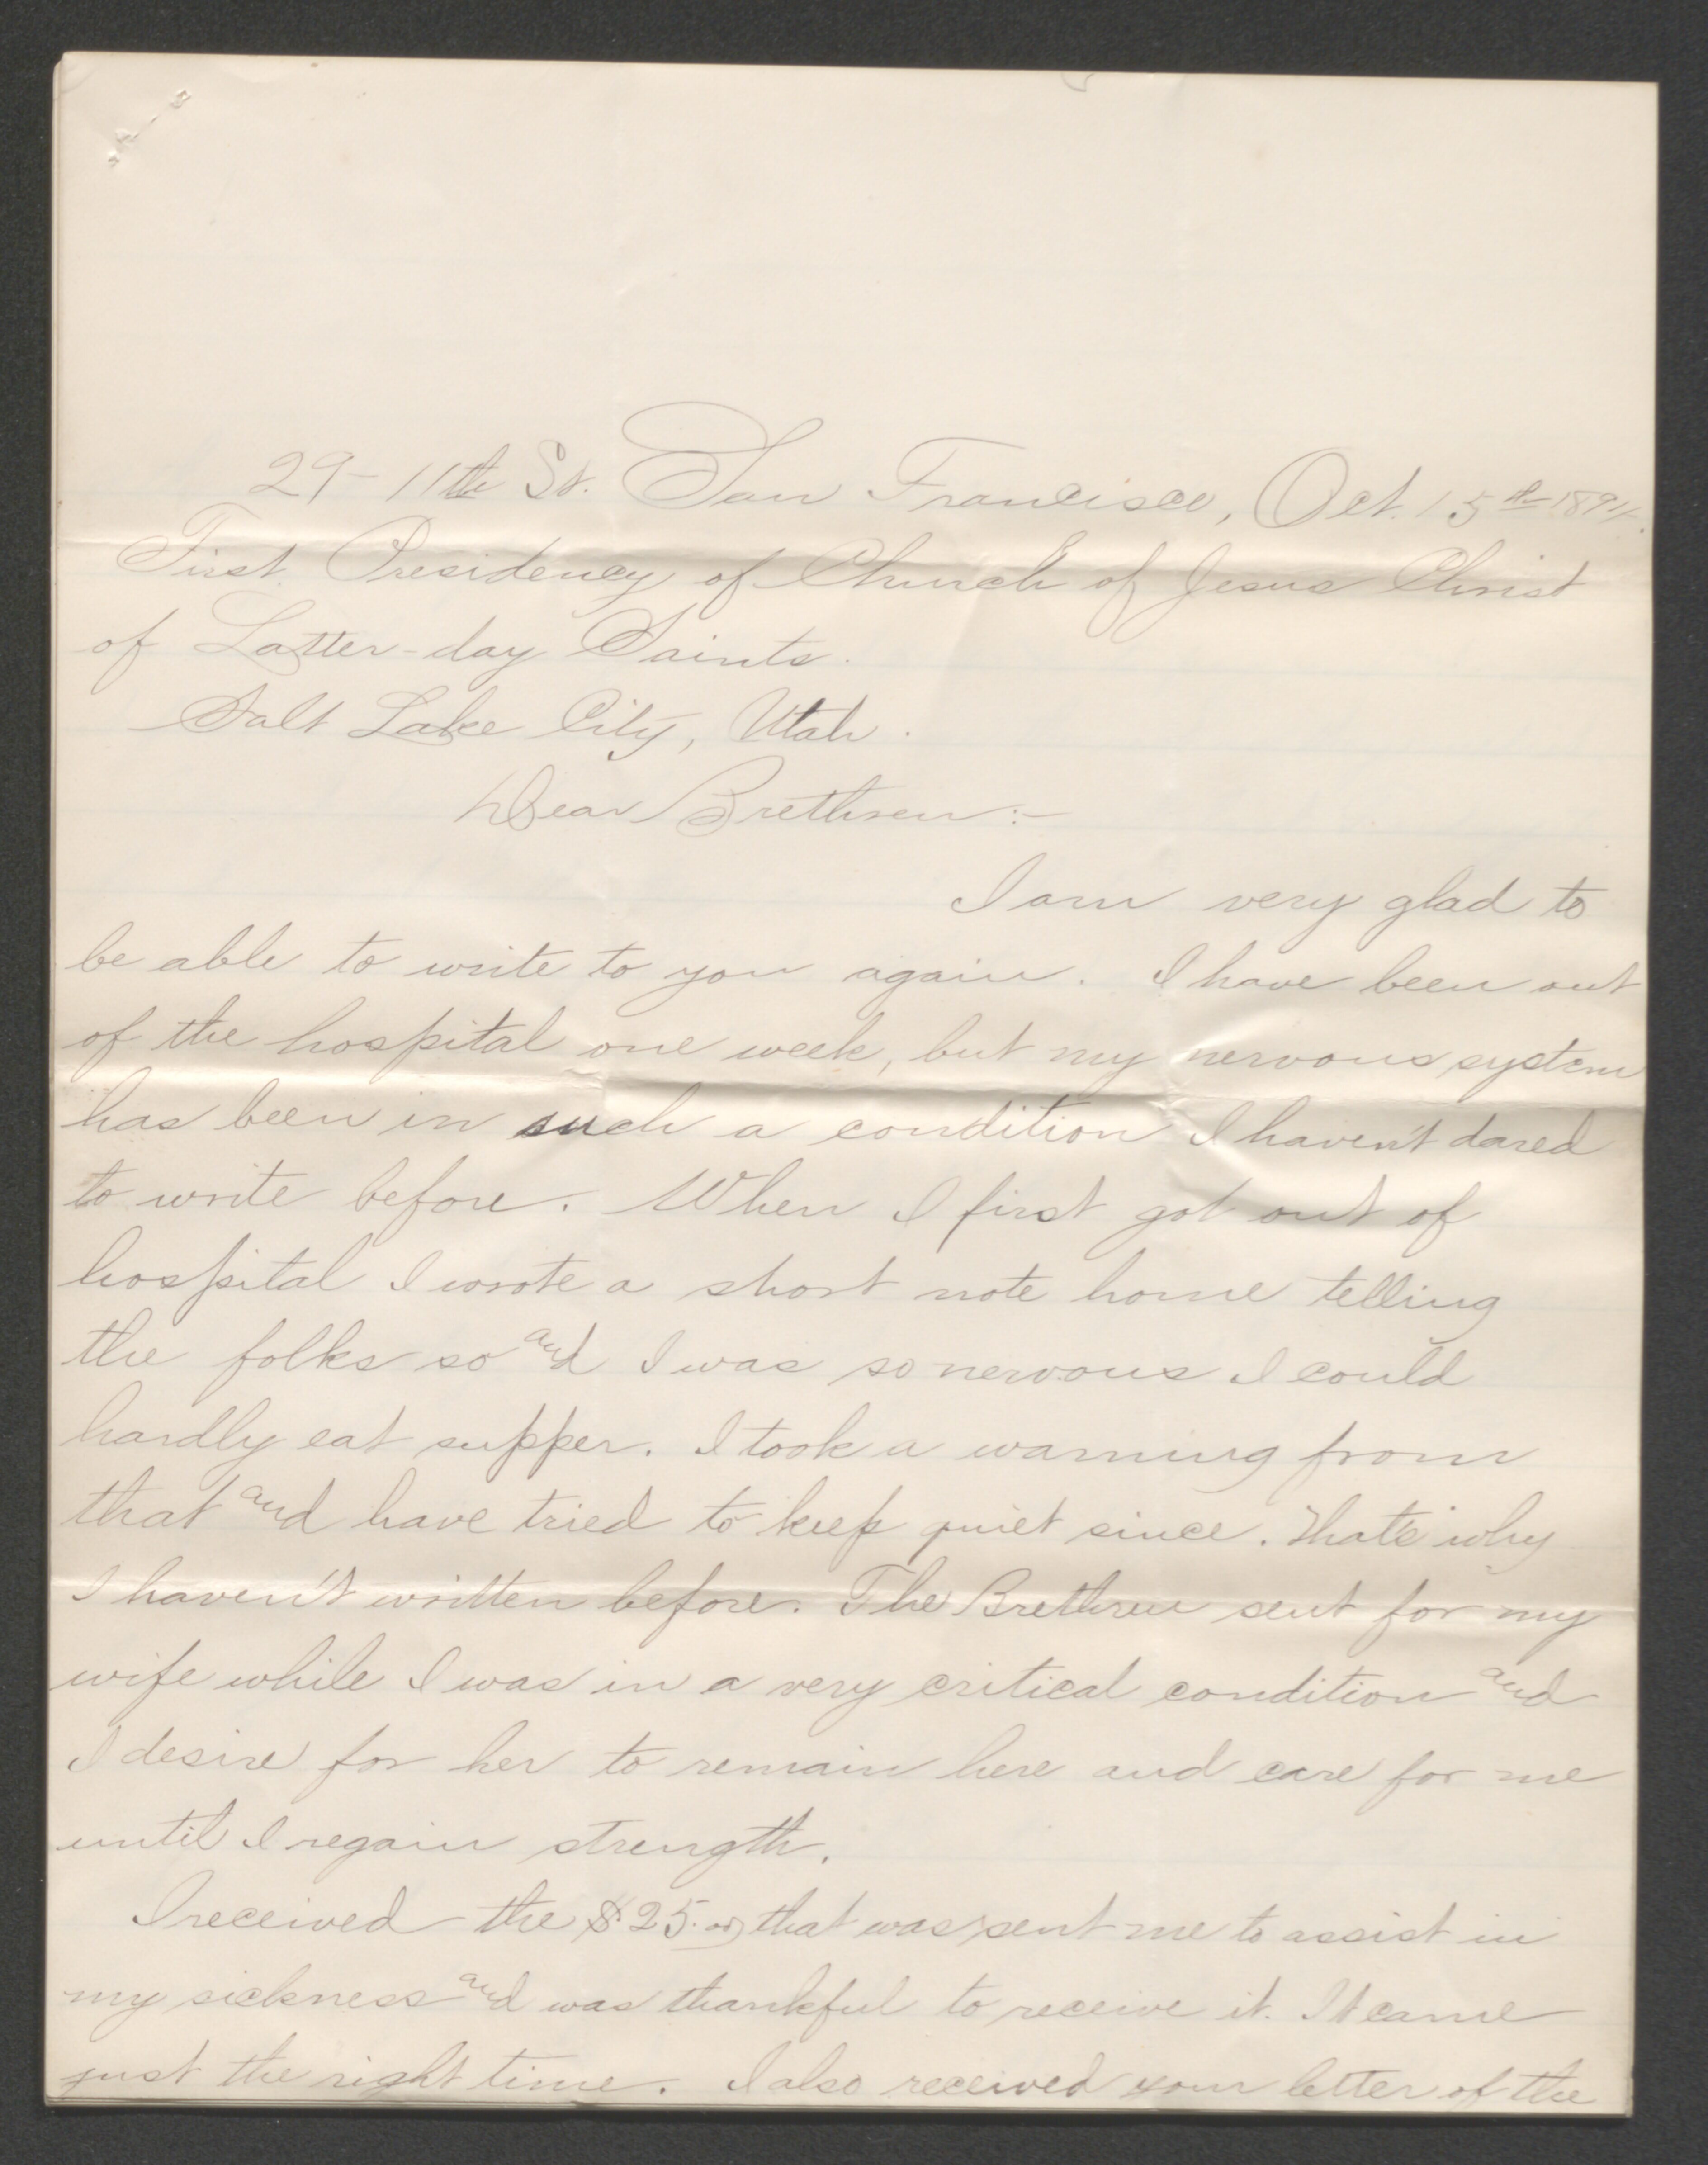 29-11th St. San Francisco, Oct. 15th 1894.
First Presidency of Church of Jesus Christ
of Latter-day Saints.
Salt Lake City, Utah.
Dear Brethren:-
I am very glad to
be able to write to you again. I have been out
of the hospital one week, but my nervous system
has been in such a condition I haven't dared
to write before. When I first got out of
hospital I wrote a short note home telling
the folks so and I was so nervous I could
hardly eat supper. I took a warning from
that and have tried to keep quiet since. That's why
I haven't written before. The Brethren sent for my
wife while I was in a very critical condition and
I desire for her to remain here and care for me
until I regain strength.
I received the $25.00 that was sent me to assist in
my sickness and was thankful to receive it. It came
just the right time. I also received your letter of the